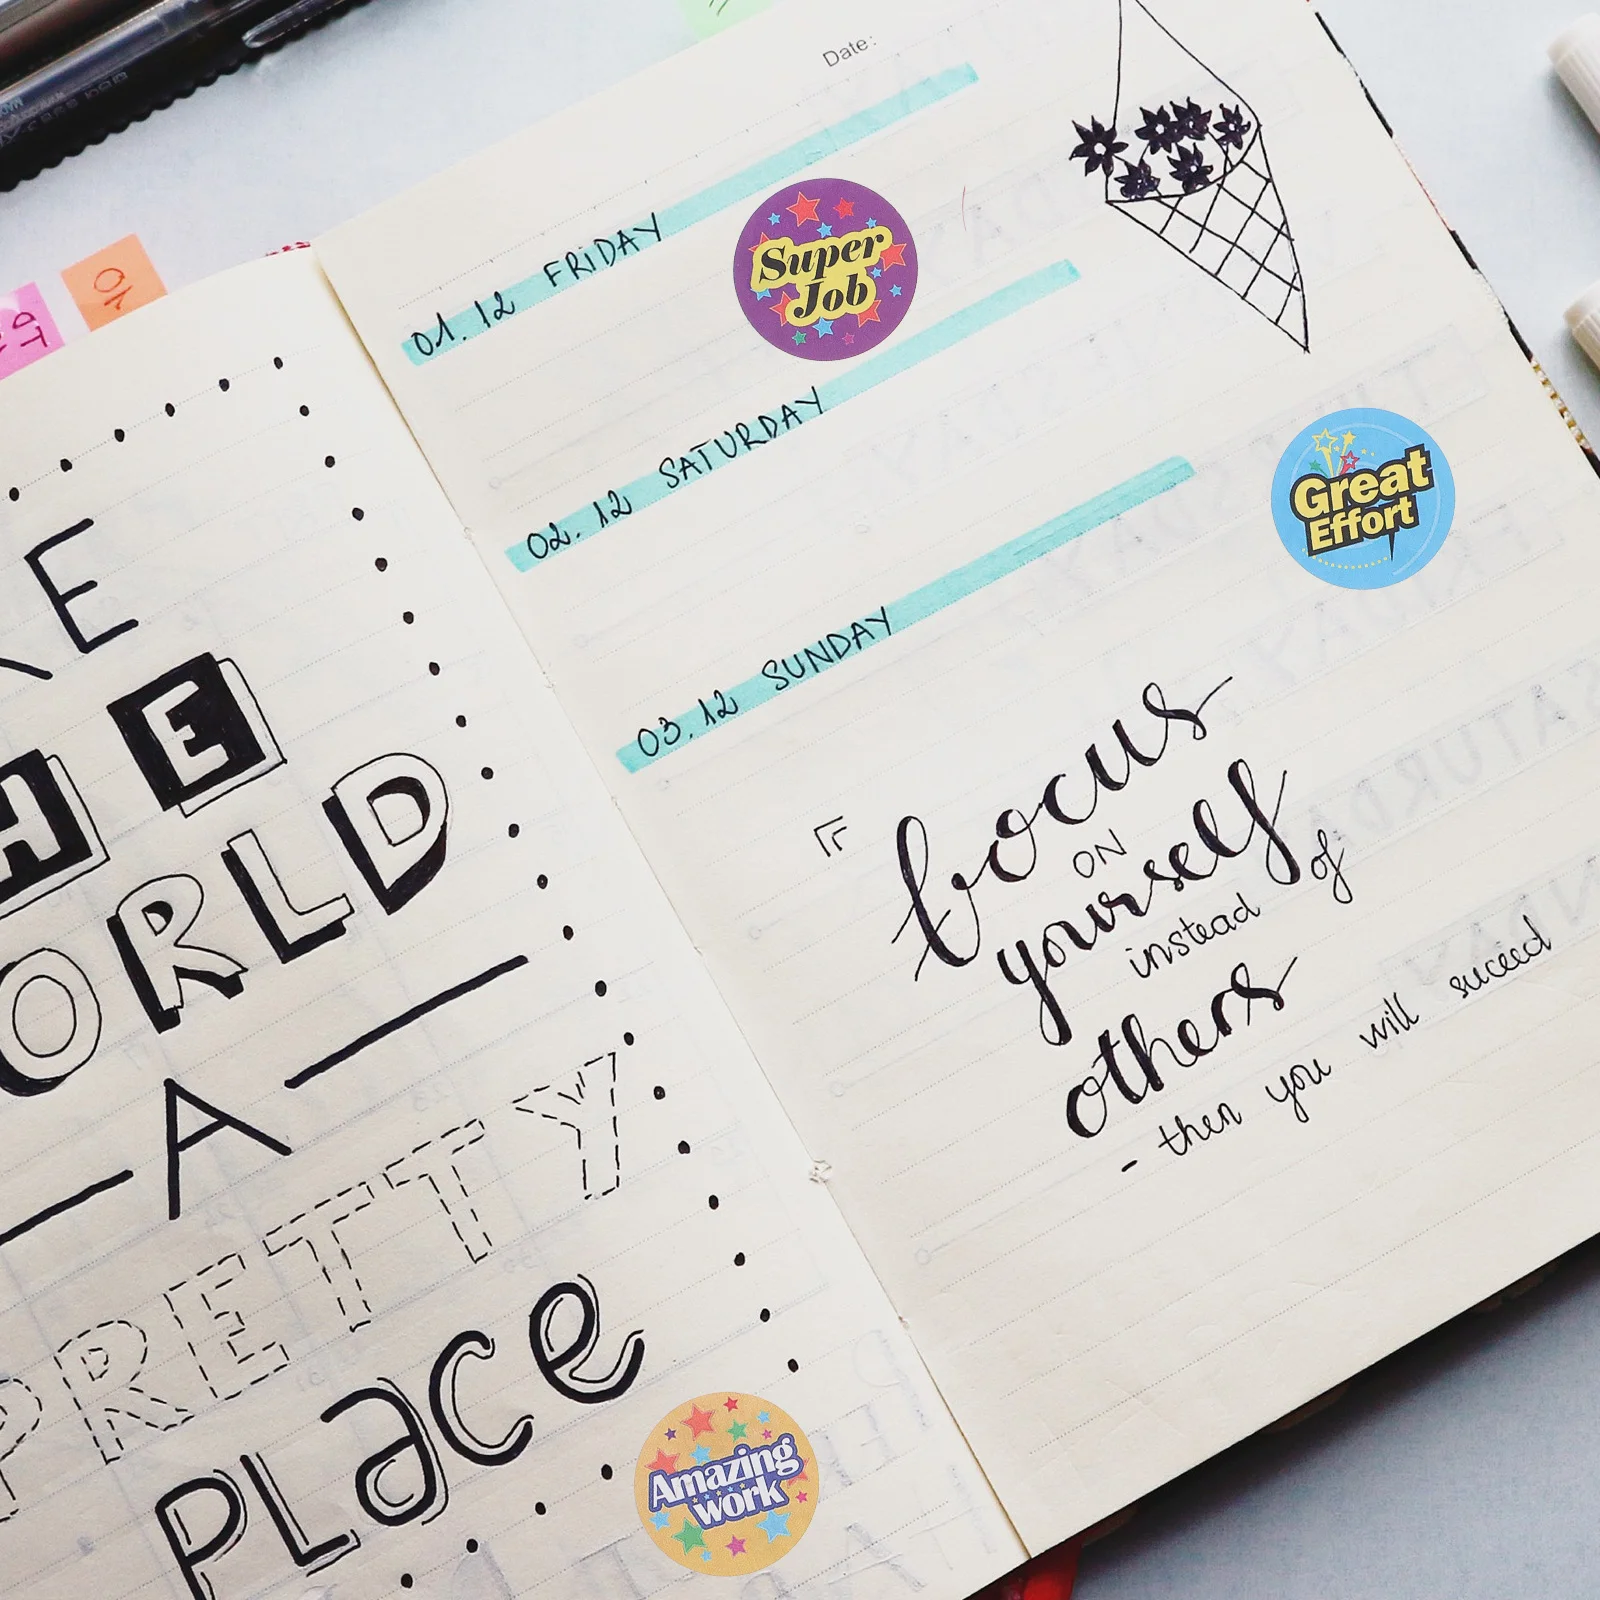 KE
HE
ORLD
A
PRETTY
PLace
Amazing
work
Date:
01.12 FRIDAY
Super
Job
02.12 SATURDAY
03.12 SUNDAY
Great
Effort
focus
ON
yourself
instead of
others
- then you will suceed
10